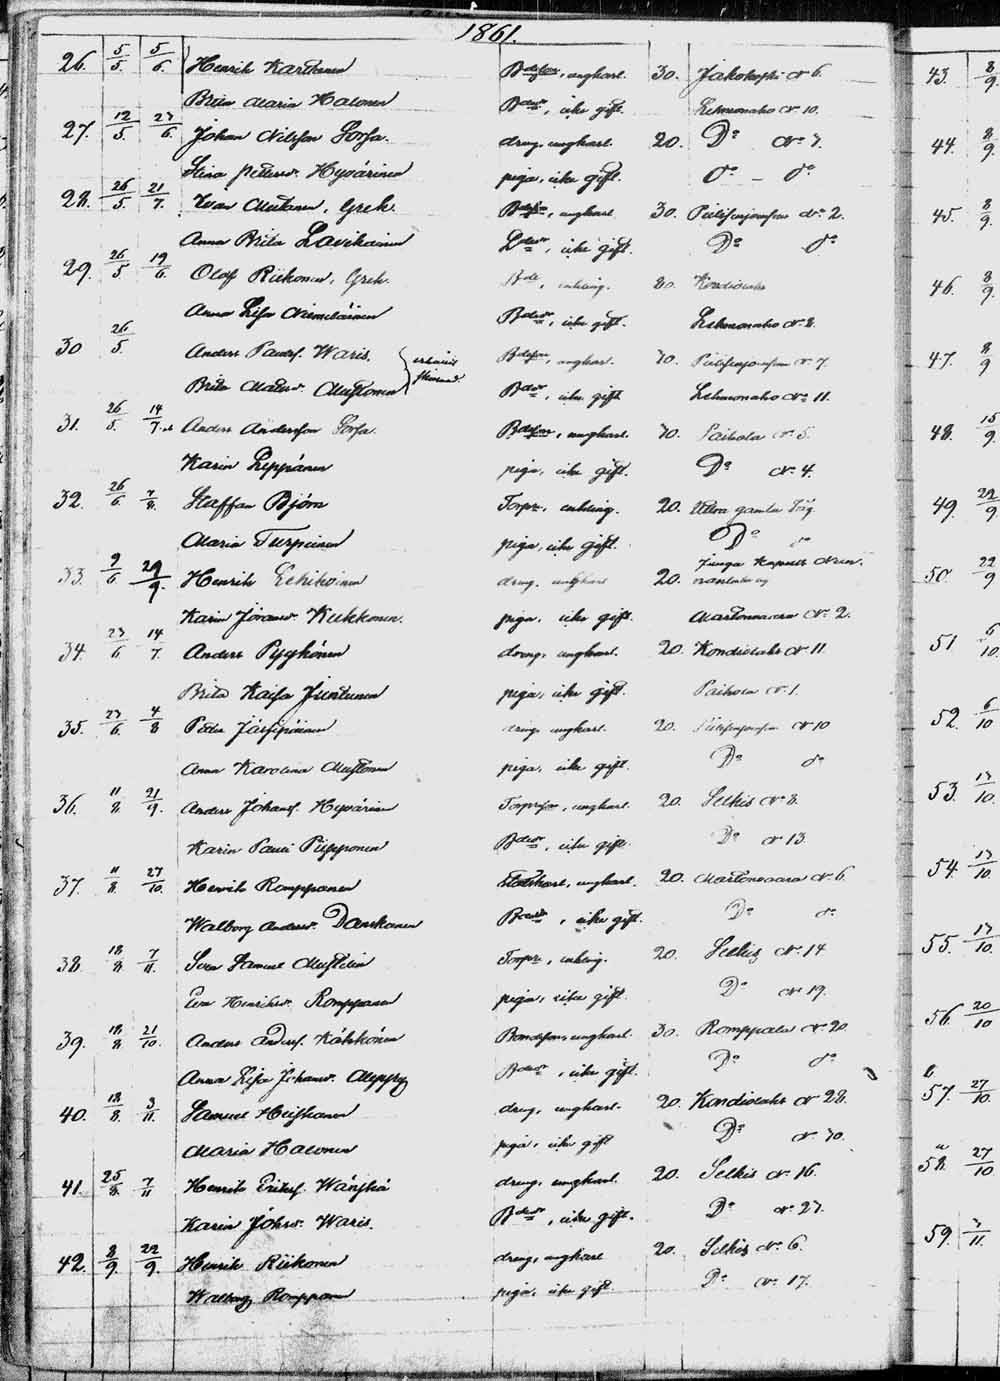 1861.
26. 5/5. 5/6. Henrik Karttunen Bdeson, ungkarl. 30. Jakokoski No 6.
Brita Maria Halonen Bdotr, icke gift. Lehmonaho No 10.
27. 12/5. 23/6. Johan Nilsson Sorsa. dreng, ungkarl. 20. Do No 7.
Stina Pettersd. Hyvärinen piga, icke gift. do – do
28. 26/5. 21/7. Iwan Mutanen, Grek. Bdeson, ungkarl 30. Pielisensuu No 2.
Anna Brita Lavikainen Bdotr, icke gift. Do do
29. 26/5. 19/6. Olof Riikonen, Grek. Bde, enkling. 30. Kondiolaks
Anna Lisa Niemeläinen Bdotr, icke gift. Lehmonaho No 8.
30 26/5. Anders Paulss. Waris. Bdeson, ungkarl. 30. No 7.
Brita Matsd. Mustonen Bdotr, icke gift Lehmonaho No 11.
31. 26/5. 14/7. Anders Andersson Sorsa. Bdeson, ungkarl. 30. Paihola No 5.
Karin Leppänen piga, icke gift. Do No 4.
32. 26/6. 7/8. Staffan Björn Torpr, enkling. 20. gamla
Maria Turpeinen piga, icke gift. Do do
33. 9/6. 29/9. Henrik dreng, ungkarl 20. Junga
Karin Jöransd. Kukkonen. piga, icke gift. Martonvaara No 2.
34. 23/6. 14/7. Anders Pyykönen dreng, ungkarl. 20. Kondiolaks No 11
Brita Kaisa Juntunen piga, icke gift. Paihola No 1.
35. 23/6. 4/8 Petter dreng, ungkarl. 20. No 10
Anna Karolina Mustonen piga, icke gift. Do do
36. 11/8. 21/9. Anders Johanss. Hyvärinen Torpson, ungkarl. 20. Selkis No 8.
Karin Bdotr, icke gift. Do No 13.
37. 11/8. 27/10. Henrik Romppanen ungkarl. 20. Martonvaara No 6
Walborg Andersd. Danskanen Bdotr, icke gift. Do do
38. 18/8. 7/11. Sven Samuel Torpr, enkling. 20. Selkis No 14
Eva Henriksd. Romppanen piga, icke gift. Do No 19.
39. 18/8. 21/10. Anders Anderss. Kähkönen Bondeson, ungkarl. 30. Romppala No 20.
Anna Lisa Johansd. Bdotr, icke gift. Do do
40. 18/8. 3/11. Samuel Heiskanen dreng, ungkarl. 20. Kondiolaks No 28.
Maria Halonen piga, icke gift Do No 30.
41. 25/8. 7/11 Henrik Erikss. Wänskä dreng, ungkarl. 20. Selkis No 16
Karin Johsd. Waris. Bdotr, icke gift. Do No 27.
42. 8/9. 22/9. Henrik Riikonen dreng, ungkarl 20. Selkis No 6.
Walborg Romppanen piga, icke gift Do No 17.
43. 8/9.
44. 8/9.
45. 8/9.
46. 8/9.
47. 8/9
48. 15/9.
49. 22/9
50. 22/9
51. 6/10.
52. 6/10
53. 13/10.
54. 13/10.
55. 13/10.
56. 20/10
57. 27/10.
58. 27/10
59. 3/11.